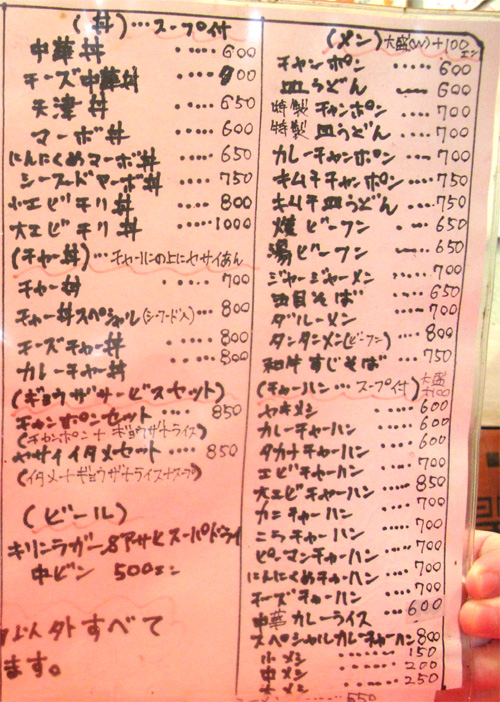 (丼)…スープ付
中華丼 ‥‥600
チーズ中華丼 ‥‥800
天津丼 ‥‥650
マーボ丼 ‥‥600
にんにくめマーボ丼 ‥‥650
シーフードマーボ丼 ‥‥750
小エビチリ丼 ‥‥800
大エビチリ丼 ‥‥1000
(チャー丼)…チャーハンの上にヤサイあん
チャー丼 ‥‥700
チャー丼スペシャル(シーフード入) ‥‥800
チーズチャー丼 ‥‥800
カレーチャー丼 ‥‥800
(ギョウザサービスセット)
チャンポンセット ‥‥850
(チャンポン+ギョウザ+ライス)
ヤサイイタメセット ‥‥850
(イタメ+ギョウザ+ライス+スープ)
(ビール)
キリンラガー&アサヒスーパードライ
中ビン 500エン
以外すべて
ます。
(メン)大盛(W)+100エン
チャンポン ‥‥600
皿うどん ‥‥600
特製チャンポン ‥‥700
特製皿うどん ‥‥700
カレーチャンポン ‥‥700
キムチチャンポン ‥‥750
キムチ皿うどん ‥‥750
焼ビーフン ‥‥650
湯ビーフン ‥‥650
ジャージャーメン ‥‥700
五目そば ‥‥650
ダルーメン ‥‥700
タンタンメン(ビーフン) ‥‥800
和牛すじそば ‥‥750
(チャーハン…スープ付)大盛+100
ヤキメシ ‥‥600
カレーチャーハン ‥‥600
タカナチャーハン ‥‥600
エビチャーハン ‥‥700
大エビチャーハン ‥‥850
カニチャーハン ‥‥700
ニラチャーハン ‥‥700
ピーマンチャーハン ‥‥700
にんにくめチャーハン ‥‥700
チーズチャーハン ‥‥700
中華カレーライス ‥‥600
スペシャルカレーチャーハン 800
小メシ ‥‥150
中メシ ‥‥200
大メシ ‥‥250
550